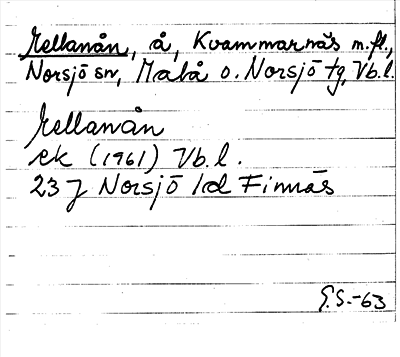 Mellanån, å, Kvammarnäs m.fl.,
Norsjö sn, Malå o. Norsjö tg, Vb.l.
Mellanån
ek (1961) Vb.l.
23 J Norsjö 1d Finnäs
G.S.-63